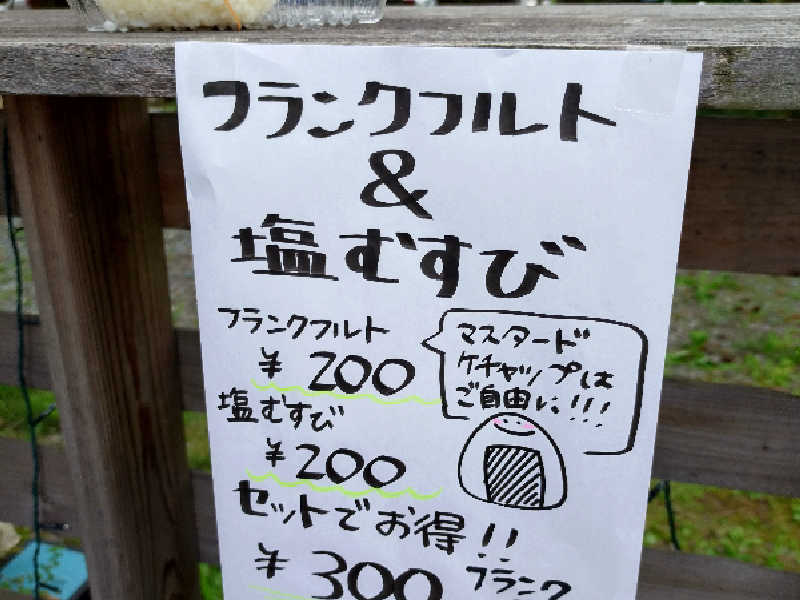 フランクフルト
&
塩むすび
フランクフルト
¥ 200
マスタード
ケチャップは
ご自由に!!!
塩むすび
¥ 200
セットでお得!!
¥ 300 フランク